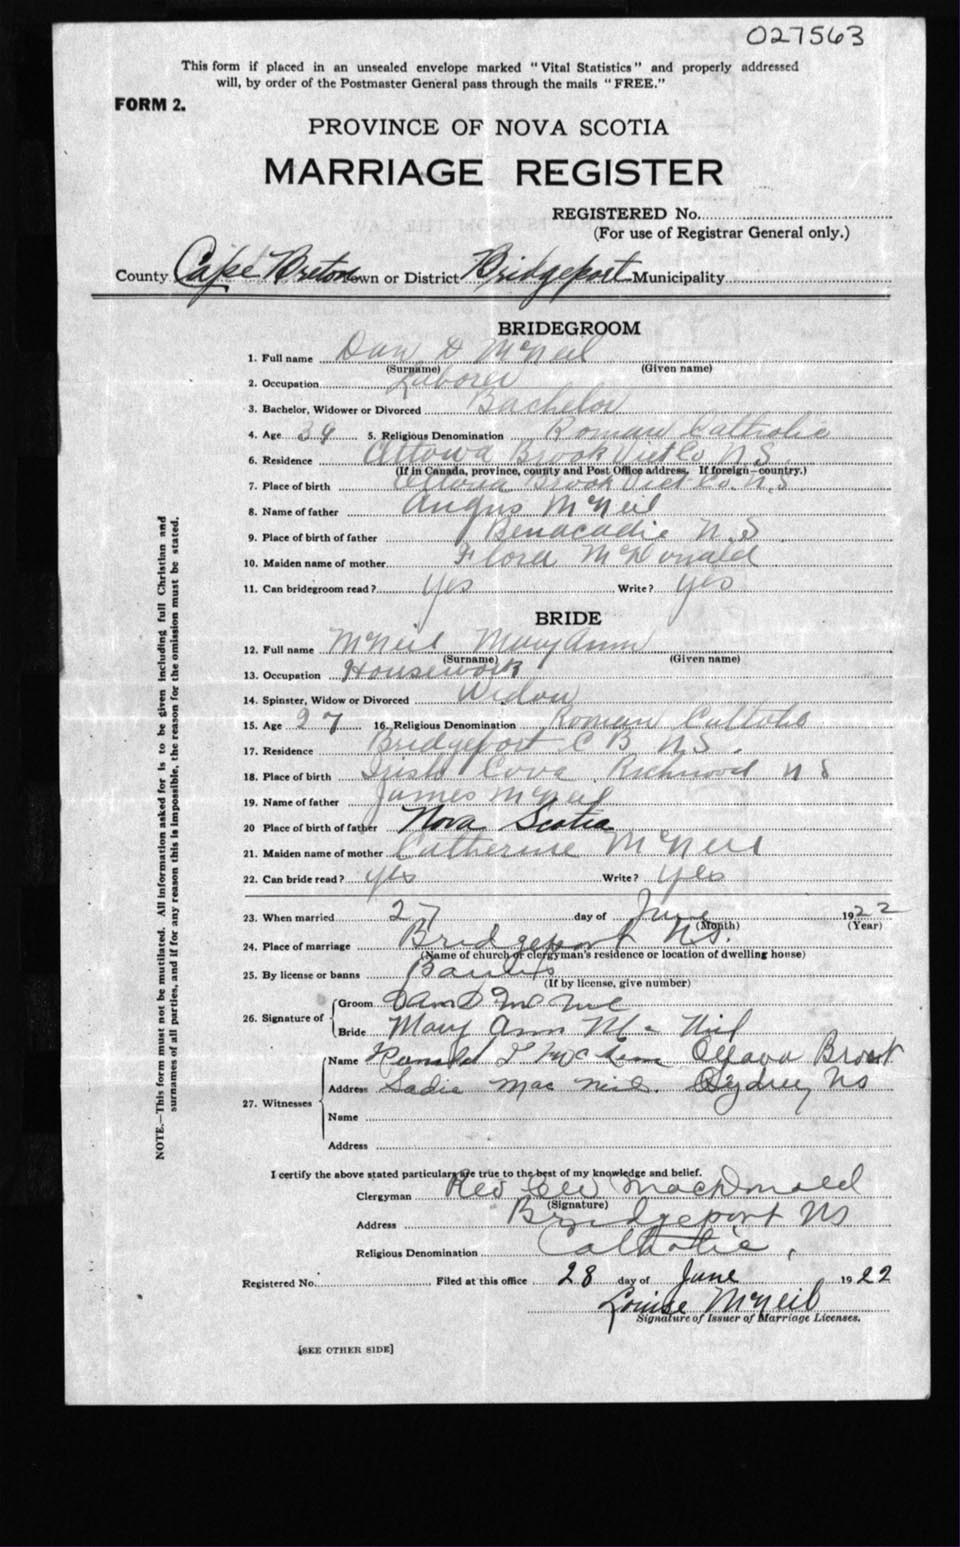 027563
This form if placed in an unsealed envelope marked "Vital Statistics" and properly addressed
will, by order of the Postmaster General pass through the mails "FREE."
FORM 2.
PROVINCE OF NOVA SCOTIA
MARRIAGE REGISTER
REGISTERED No.
(For use of Registrar General only.)
County Cape Breton Town or District Bridgeport Municipality
BRIDEGROOM
1. Full name Dan D McNeil
(Surname) (Given name)
2. Occupation Laborer
3. Bachelor, Widower or Divorced Bachelor
4. Age 34 5. Religious Denomination Roman Catholic
6. Residence Ottowa Brook Vict Co N.S.
(If in Canada, province, county and Post Office address. If foreign—country.)
7. Place of birth Ottowa Brook Vict Co. N.S
8. Name of father Angus McNeil
9. Place of birth of father Benacadie N.S
10. Maiden name of mother Flora McDonald
11. Can bridegroom read? yes Write? yes
BRIDE
12. Full name McNeil Mary Ann
(Surname) (Given name)
13. Occupation Housework
14. Spinster, Widow or Divorced Widow
15. Age 27 16. Religious Denomination Roman Catholic
17. Residence Bridgeport C B N.S.
18. Place of birth Irish Cove Richmond N S
19. Name of father James McNeil
20 Place of birth of father Nova Scotia
21. Maiden name of mother Catherine McNeil
22. Can bride read? yes Write? yes
23. When married 27 day of June 1922
(Month) (Year)
24. Place of marriage Bridgeport N.S.
(Name of church or clergyman's residence or location of dwelling house)
25. By license or banns Banns
(If by license, give number)
26. Signature of Groom Dan D
Bride Mary Ann Mc Neil
27. Witnesses Name Brook
Address Sadie Mac Neil. Sydney NS
Name
Address
I certify the above stated particulars are true to the best of my knowledge and belief.
Clergyman Rev MacDonald
(Signature)
Address Bridgeport NS
Religious Denomination Catholic.
Registered No. Filed at this office 28 day of June 1922
Louise McNeil
Signature of Issuer of Marriage Licenses.
[SEE OTHER SIDE]
NOTE.—This form must not be mutilated. All information asked for is to be given including full Christian and
surnames of all parties, and if for any reason this is impossible, the reason for the omission must be stated.